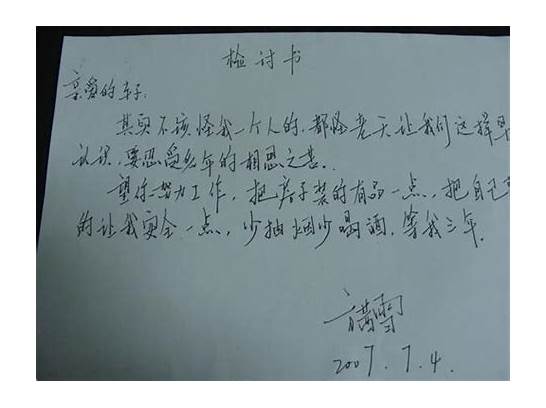 检讨书
亲爱的车子:
其实不该怪我一个人的,都怪老天让我们这样早
认识,要忍受多年的相思之苦.
望你努力工作,把房子装的有品一点,把自己
的让我安全一点,少抽烟少喝酒,等我三年.
雪
2007.7.4.